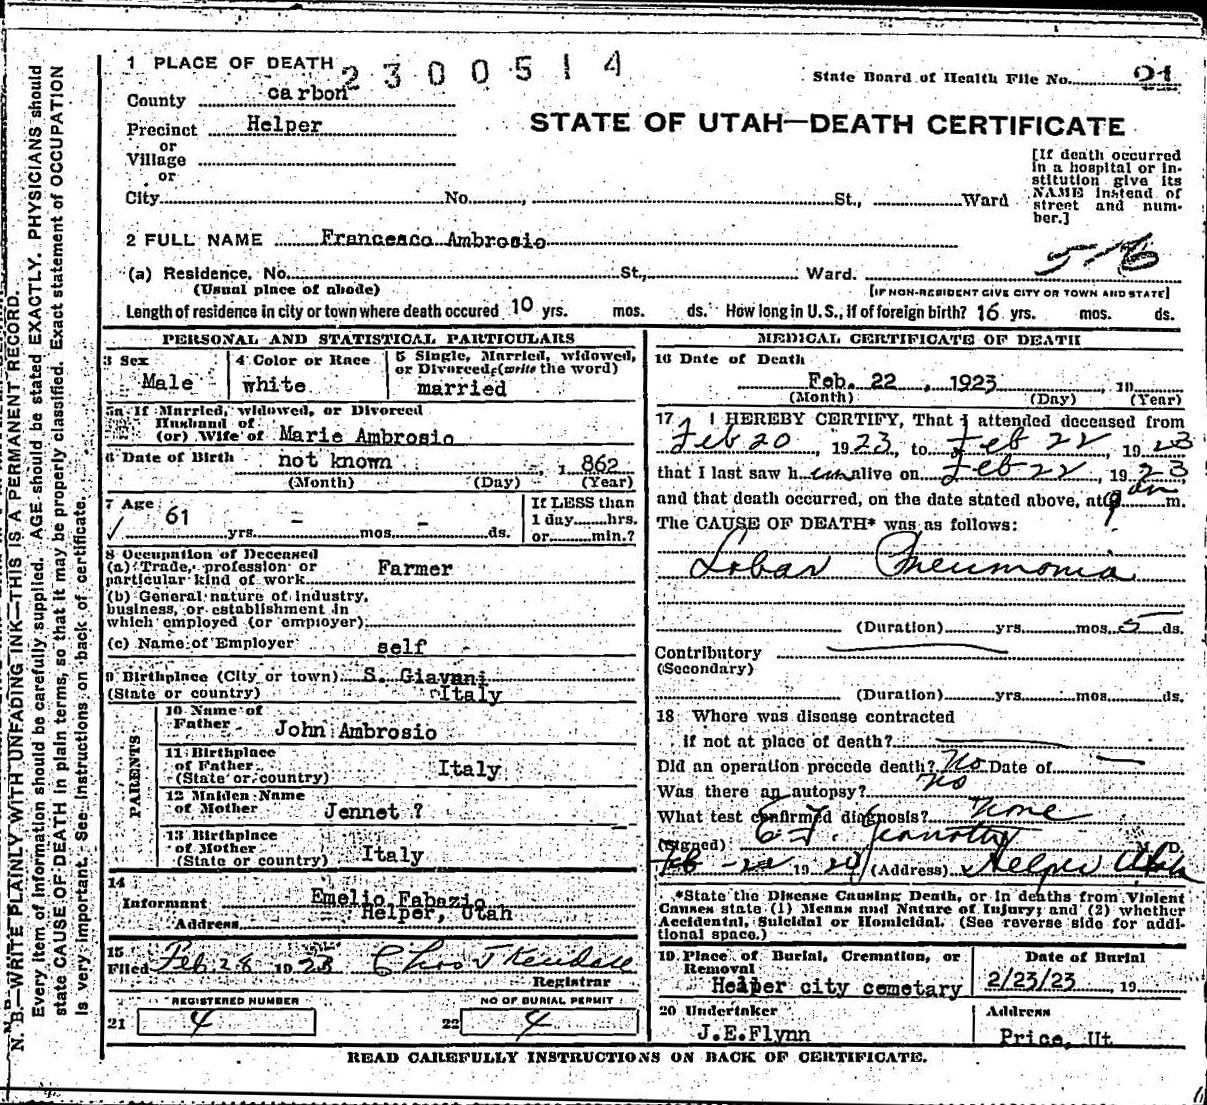 1 PLACE OF DEATH 2300514
State Board of Health File No. 21
County carbon
Precinct Helper
or
Village
or
STATE OF UTAH—DEATH CERTIFICATE
[If death occurred
in a hospital or in-
stitution give its
NAME instead of
street and num-
ber.]
City No. St., Ward
2 FULL NAME Francesco Ambrosio
(a) Residence. No. St., Ward.
(Usual place of abode)
[IF NON-RESIDENT GIVE CITY OR TOWN AND STATE]
Length of residence in city or town where death occured 10 yrs. mos. ds. How long in U.S., if of foreign birth? 16 yrs. mos. ds.
PERSONAL AND STATISTICAL PARTICULARS
3 Sex
Male
4 Color or Race
white
5 Single, Married, widowed,
or Divorced (write the word)
married
5a If Married, widowed, or Divorced
Husband of
(or) Wife of Marie Ambrosio
6 Date of Birth not known , 1 862
(Month) (Day) (Year)
7 Age
61 yrs. – mos. – ds.
If LESS than
1 day hrs.
or min.?
8 Occupation of Deceased
(a) Trade, profession or
particular kind of work Farmer
(b) General nature of industry,
business, or establishment in
which employed (or employer)
(c) Name of Employer self
9 Birthplace (City or town) S. Giavani
(State or country) Italy
PARENTS
10 Name of
Father John Ambrosio
11 Birthplace
of Father
(State or country) Italy
12 Maiden Name
of Mother Jennet ?
13 Birthplace
of Mother
(State or country) Italy
14
Informant Emelio Fabazio
Address Helper, Utah
15
Filed Feb 28 1923 Chas J Kendall
Registrar
REGISTERED NUMBER
21 4
NO OF BURIAL PERMIT
22 4
MEDICAL CERTIFICATE OF DEATH
16 Date of Death
Feb. 22 , 1923 , 19
(Month) (Day) (Year)
17 I HEREBY CERTIFY, That I attended deceased from
Feb 20 , 1923, to Feb 22 , 1923
that I last saw him alive on Feb 22 , 1923
and that death occurred, on the date stated above, at 9 am m.
The CAUSE OF DEATH* was as follows:
Lobar Pneumonia
(Duration) yrs. mos. 5 ds.
Contributory
(Secondary)
(Duration) yrs. mos. ds.
18 Where was disease contracted
if not at place of death?
Did an operation precede death? No Date of —
Was there an autopsy? No
What test confirmed diagnosis? None
(Signed) M. D.
Feb 22 19 (Address) Helper Utah
*State the Disease Causing Death, or in deaths from Violent
Causes state (1) Means and Nature of Injury; and (2) whether
Accidental, Suicidal or Homicidal. (See reverse side for addi-
tional space.)
19 Place of Burial, Cremation, or
Removal
Helper city cemetary
Date of Burial
2/23/23 , 19
20 Undertaker
J.E.Flynn
Address
Price, Ut
READ CAREFULLY INSTRUCTIONS ON BACK OF CERTIFICATE.
N. B.—WRITE PLAINLY WITH UNFADING INK—THIS IS A PERMANENT RECORD.
Every item of information should be carefully supplied. AGE should be stated EXACTLY. PHYSICIANS should
state CAUSE OF DEATH in plain terms, so that it may be properly classified. Exact statement of OCCUPATION
is very important. See instructions on back of certificate.